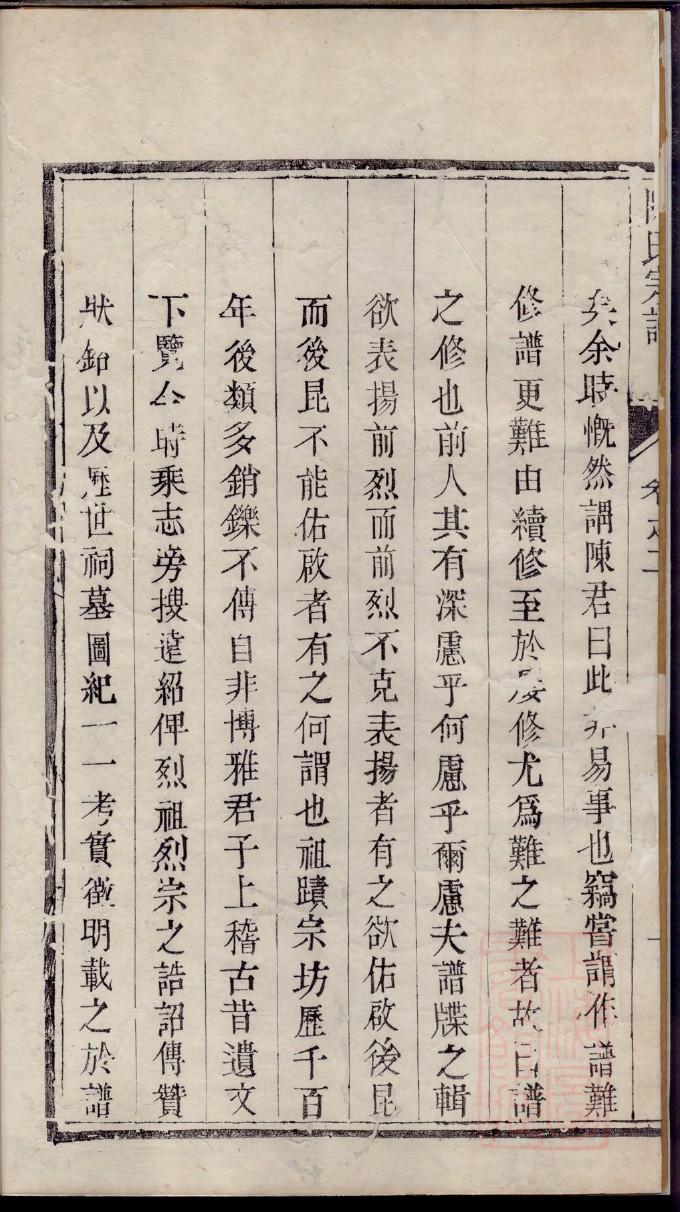 陳氏宗譜 卷之二
矣余時慨然謂陳君曰此非易事也竊嘗謂作譜難
修譜更難由續修至於屢修尤為難之難者故曰譜
之修也前人其有深慮乎何慮乎爾慮夫譜牒之輯
欲表揚前烈而前烈不克表揚者有之欲佑啟後昆
而後昆不能佑啟者有之何謂也祖蹟宗坊歷千百
年後類多銷鑠不傳自非博雅君子上稽古昔遺文
下覽今時乘志旁搜遠紹俾烈祖烈宗之誥詔傳贊
狀銘以及歷世祠墓圖紀一一考實徵明載之於譜